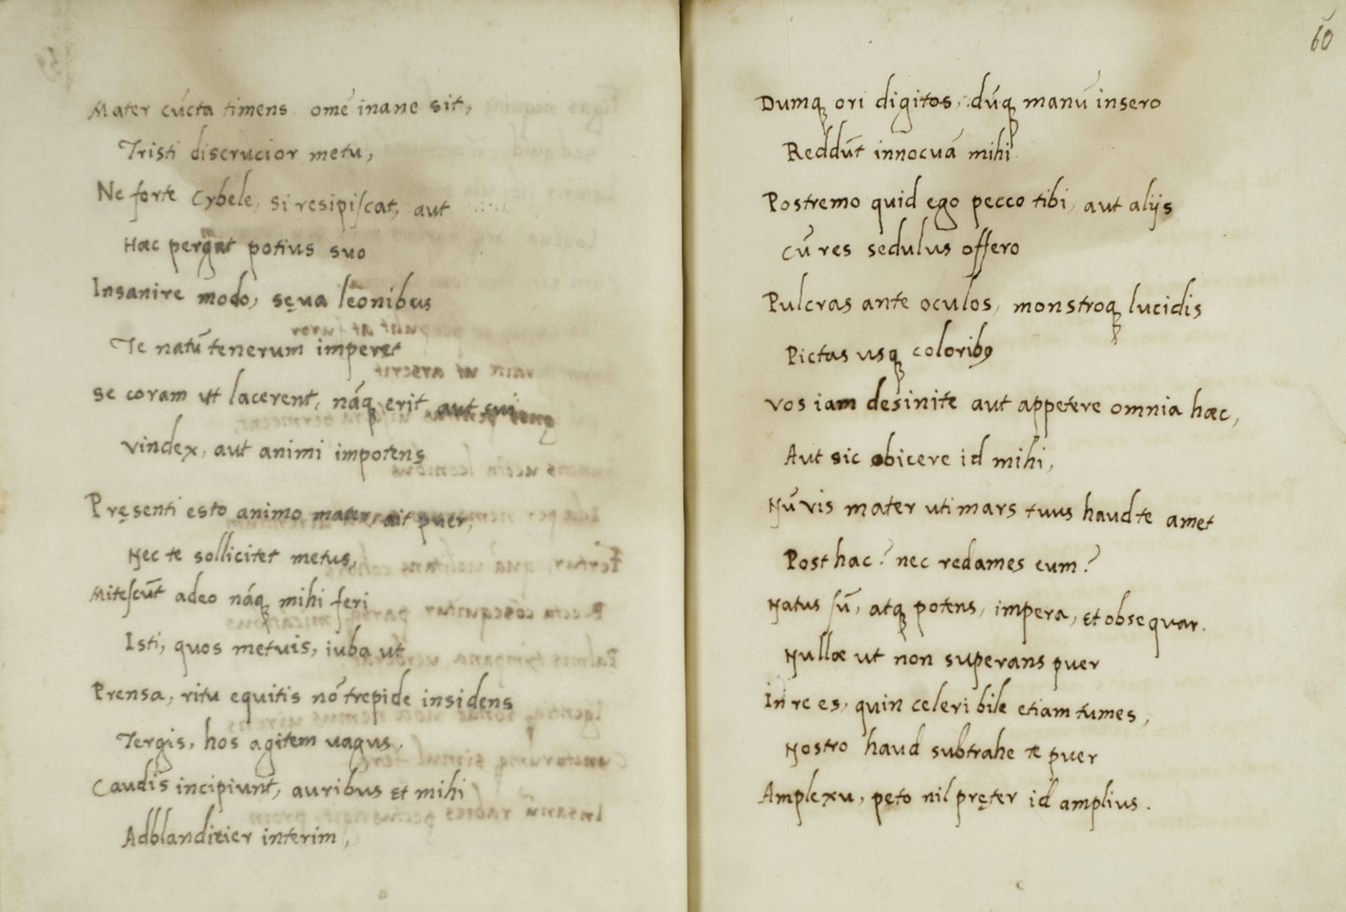 Mater cúcta timens omē inane sit,
Tristi discrucior metu,
Ne forte Cybele, si resipiscat, aut
Hac pergat potius suo
Insanire modo, sęva leonibus
Te natū tenerum imperet
se coram ut lacerent, náq erit aut sui
vindex, aut animi impotens
Pręsenti esto animo mater, ait puer,
Nec te sollicitet metus,
Mitescūt adeo náq mihi feri
Isti, quos metuis, iuba ut
Prensa, ritu equitis nō trepide insidens
Tergis, hos agitem uagus,
Caudis incipiunt, auribus et mihi
Adblanditier interim,
60
Dumq ori digitos, dúq manū insero
Reddūt innocuā mihi
Postremo quid ego pecco tibi, aut alijs
Cū res sedulus offero
Pulcras ante oculos, monstroq lucidis
Pictas usq coloribȝ
vos iam desinite aut appetere omnia hæc,
Aut sic obicere id mihi,
Nū vis mater uti mars tuus haud te amet
Post hac? nec redames eum?
Natus sū, atq potens, impera, et obsequar.
Nullæ ut non superans puer
In re es, quin celeri bile etiam tumes,
Nostro haud subtrahe te puer
Amplexu, peto nil pręter id amplius.